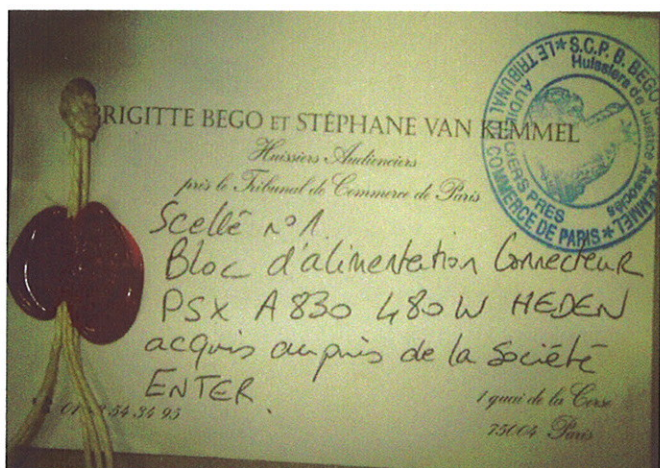 BRIGITTE BEGO ET STÉPHANE VAN KEMMEL
Huissiers Audienciers
près le Tribunal de Commerce de Paris
S.C.P. B. BEGO
KEMMEL
Huissiers de Justice Associés
AUDIENCIERS PRES
LE TRIBUNAL
COMMERCE DE PARIS
Scellé n°1.
Bloc d'alimentation Connecteur
PSX A830 480W HEDEN
acquis auprès de la Société
ENTER.
54 34 95
1 quai de la Corse
75004 Paris